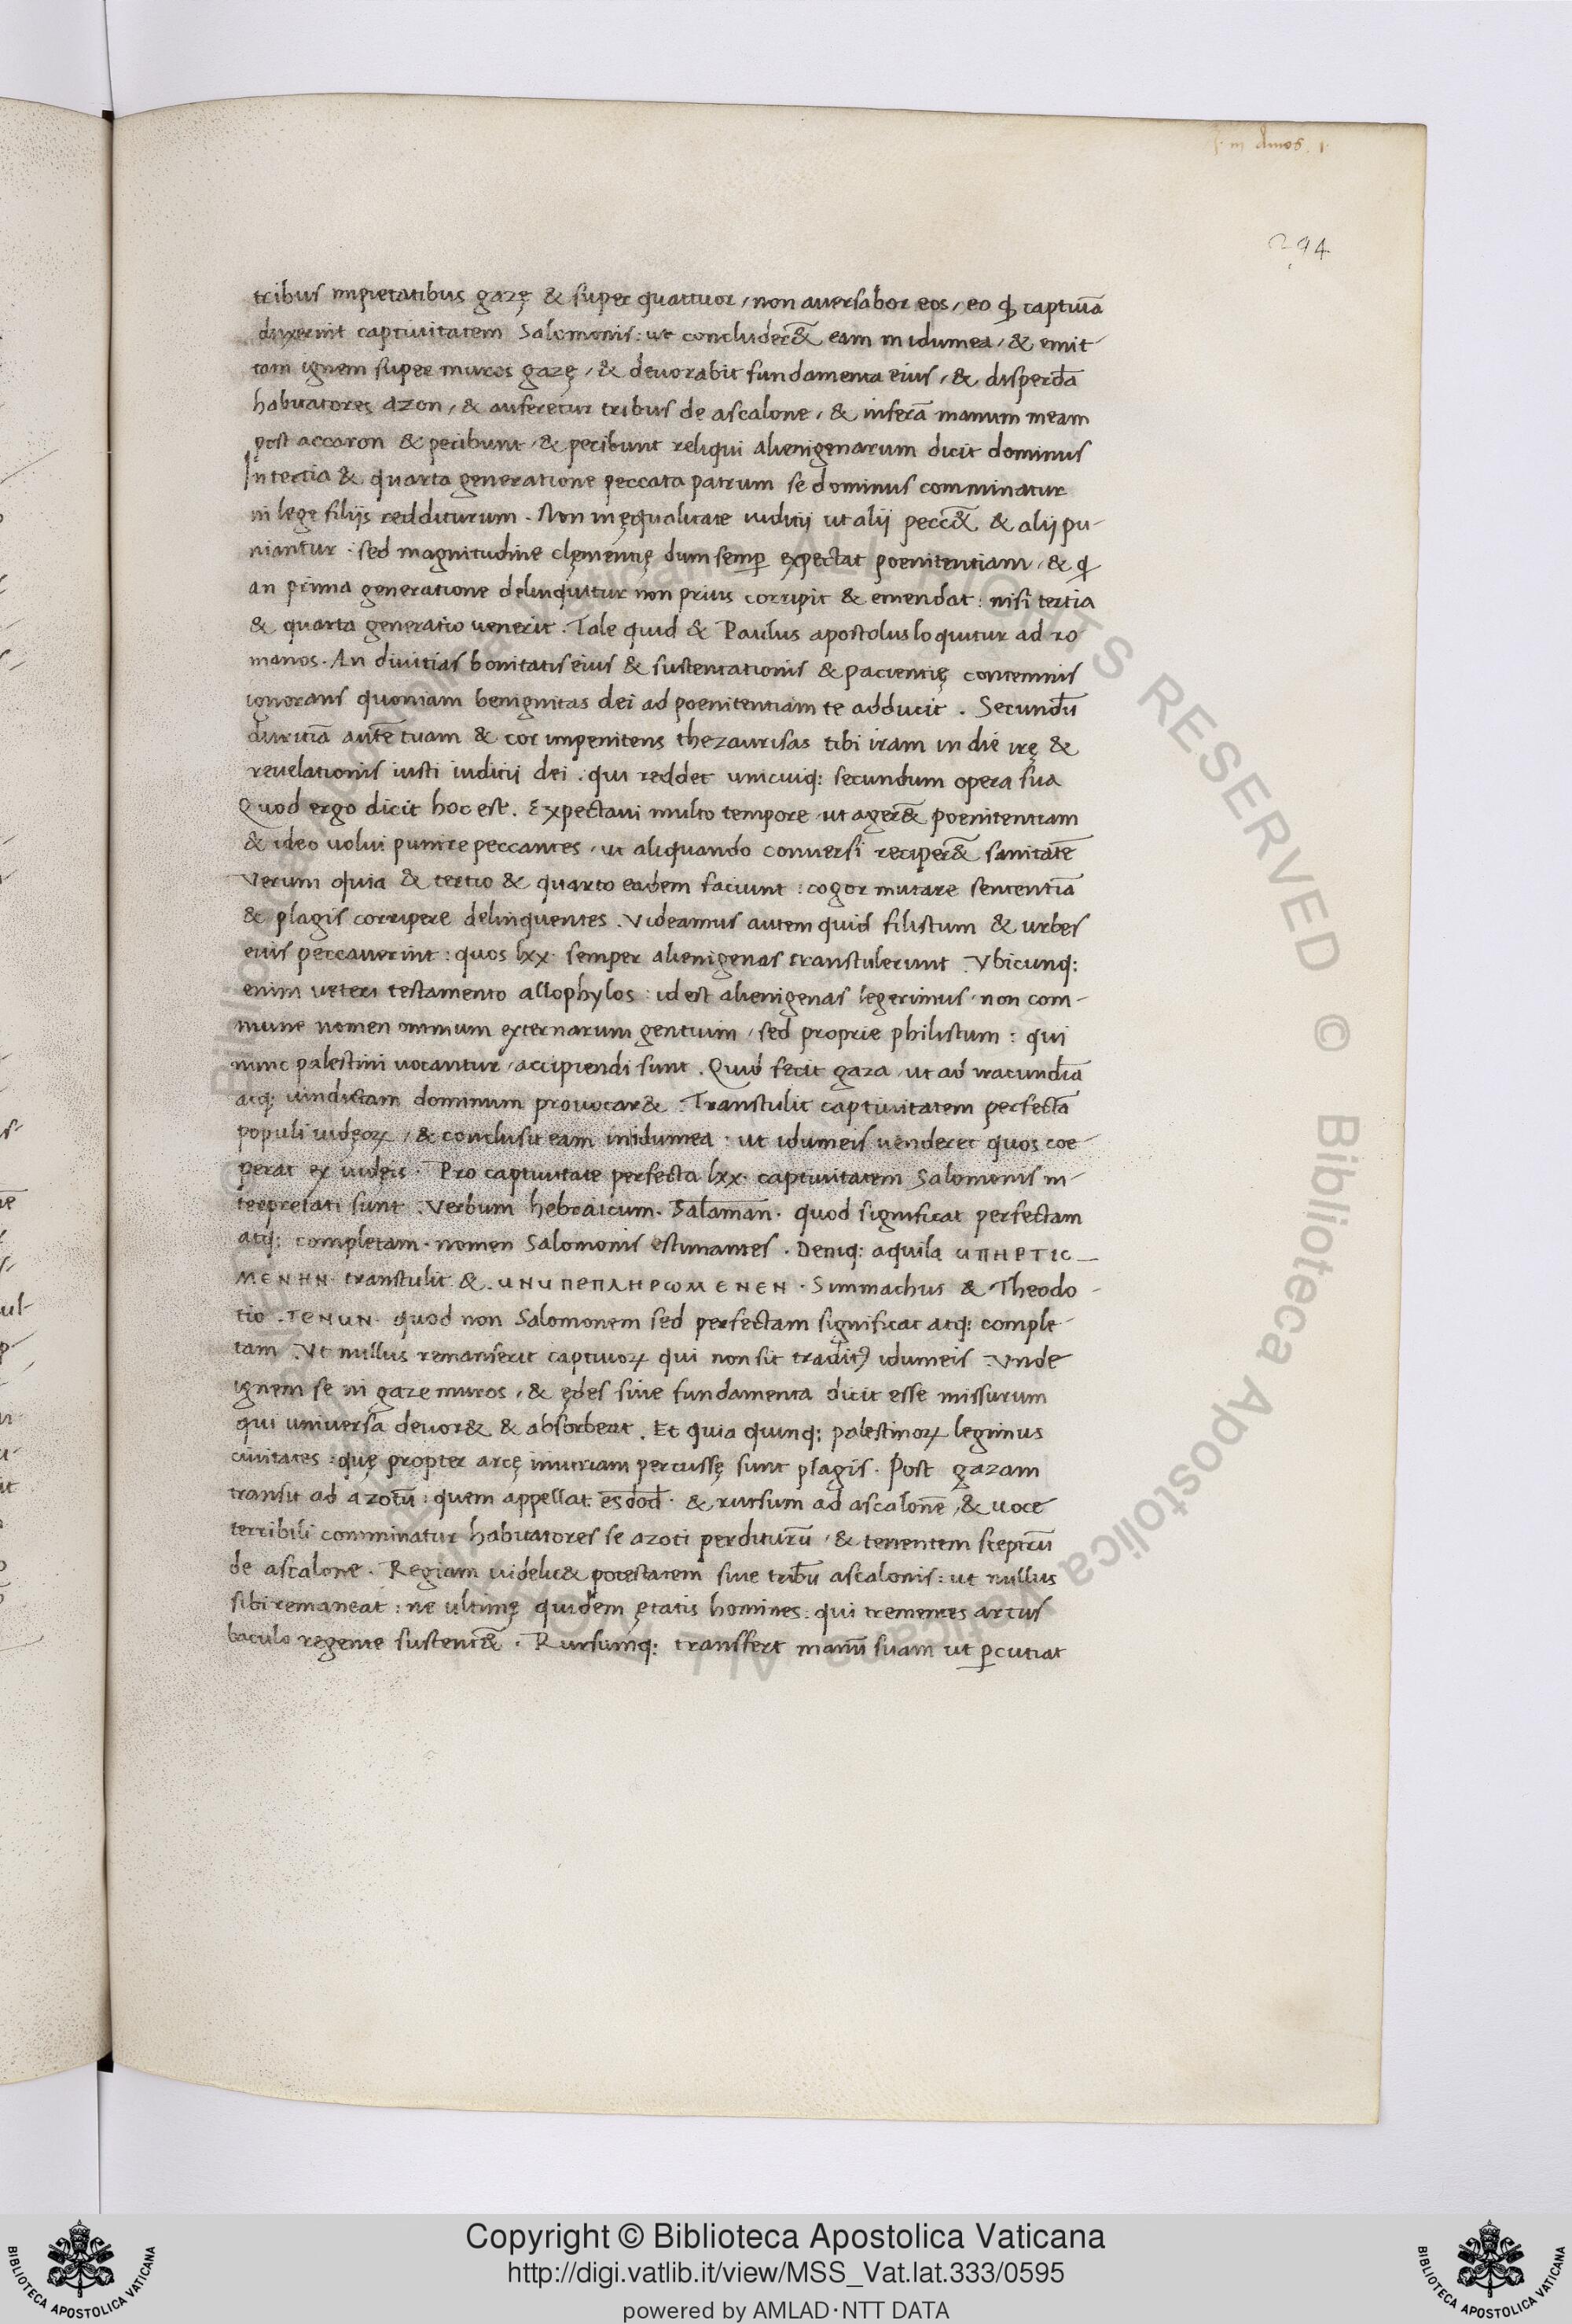 s. in Amos. 1.
294
tribus impietatibus gazę & super quattuor, non auersabor eos, eo ꝙ captiuā
duxerint captiuitatem Salomonis: ut concluder&̄ eam in idumea, & emit-
tam ignem super muros gazę, & deuorabit fundamenta eius, & disperdā
habitatores azon, & auferetur tribus de ascalone, & inferā manum meam
post accaron & peribunt, & peribunt reliqui alienigenarum dicit dominus
In tertia & quarta generatione peccata patrum se dominus comminatur
in lege filijs redditurum. Non inęqualitate iuditij ut alij pecc&̄ & alij pu-
niantur: sed magnitudine clęmentię dum semꝑ expectat poenitentiam, & ꝙ
an prima generatione delinquitur non prius corripit & emendat: nisi tertia
& quarta generatio uenerit. Tale quid & Paulus apostolus loquitur ad ro
manos. An diuitias bonitatis eius & sustentationis & pacientię contemnis
ignorans quoniam benignitas dei ad poenitentiam te adducit. Secundū
duritiā autē tuam & cor impenitens thezaurisas tibi iram in die irę &
reuelationis iusti iuditij dei. qui reddet unicuiq: secundum opera sua
Quod ergo dicit hoc est. Expectaui multo tempore ut ager&̄ poenitentiam
& ideo uolui punire peccantes, ut aliquando conuersi reciper&̄ sanitatē
Verum quia & tertio & quarto eadem faciunt: cogor mutare sententiā
& plagis corripere delinquentes. Videamus autem quid filistum & urbes
eius peccauerint: quos lxx. semper alienigenas transtulerunt. Vbicunq:
enim ueteri testamento allophylos: id est alienigenas legerimus, non com-
mune nomen omnium externarum gentuim, sed proprie philistum: qui
nunc palestini uocantur, accipiendi sunt. Quid fecit gaza, ut ad iracundiā
atq: uindictam dominum prouocar&. Transtulit captiuitatem perfectā
populi iudęoꝝ, & conclusit eam in idumea: ut idumeis uenderet quos coe-
perat ex iudęis. Pro captiuitate perfecta lxx. captiuitatem Salomonis in-
terpretati sunt. Verbum hebraicum. Salaman. quod significat perfectam
atq: completam. nomen Salomonis estimantes. Deniq: aquila ΥΠΗΡΤΙϹ-
ΜΕΝΗΝ. transtulit &. ΥΝΥΠΕΠΛΗΡωΜΕΝΕΝ. Simmachus & Theodo-
tio. ΤΕΝΥΝ. quod non Salomonem sed perfectam significat atq: comple-
tam. Vt nullus remanserit captiuoꝝ qui non sit traditꝰ idumeis. Vnde
ignem se in gaze muros, & ędes siue fundamenta dicit esse missurum
qui uniuersa deuor& & absorbeat. Et quia quinq: palestinoꝝ legimus
ciuitates: quę propter arcę iniuriam percussę sunt plagis. Post gazam
transit ad azotū: quem appellat esdod. & rursum ad ascalonē, & uoce
terribili comminatur habitatores se azoti perditurū, & tenentem sceptrū
de ascalone. Regiam uidelic& potestatem siue tribū ascalonis: ut nullus
sibi remaneat: ne ultimę quidem ętatis homines: qui trementes artus
baculo regente sustent&̄. Rursumq: transfert manū suam ut ꝑcutiat
Copyright © Biblioteca Apostolica Vaticana
http://digi.vatlib.it/view/MSS_Vat.lat.333/0595
powered by AMLAD·NTT DATA